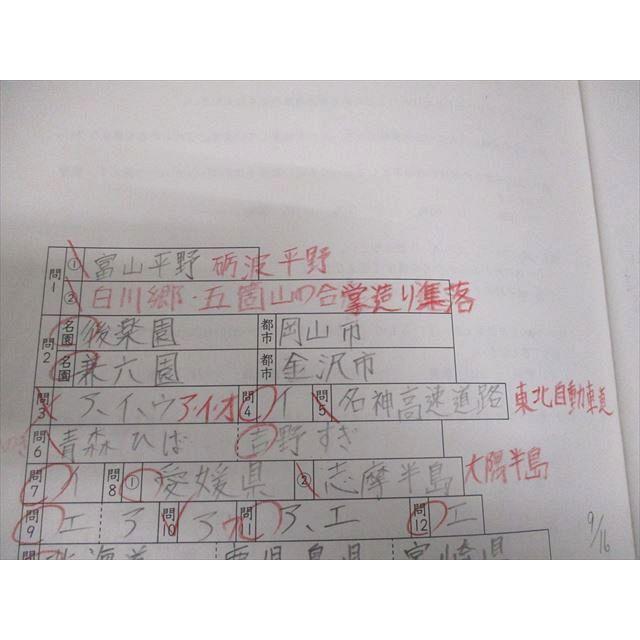 問1 ① 富山平野 砺波平野
② 白川郷・五箇山の合掌造り集落
問2 名園 後楽園 都市 岡山市
名園 兼六園 都市 金沢市
問3 ア、イ、ウ ア、イ、オ 問4 イ 問5 名神高速道路 東北自動車道
問6 青森ひば 吉野すぎ
問7 イ 問8 ① 愛媛県 ② 志摩半島 大隅半島
問9 エ ア 問10 ア 問11 ア、エ 問12 エ
北海道 鹿児島県 宮崎県
9/16